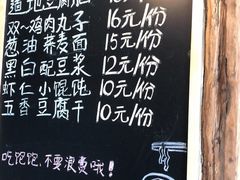 豆腐脑 15元/份
双~鸡肉丸子 16元/份
葱油荞麦面 15元/份
黑白配豆浆 12元/份
虾仁小馄饨 10元/份
五香豆腐干 10元/份
吃饱饱,不要浪费哦!